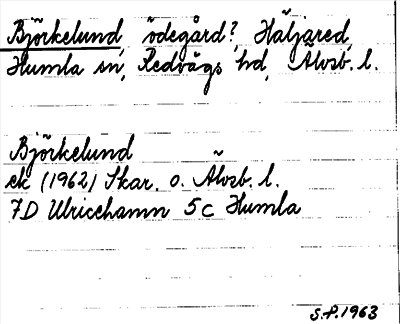 Björkelund, ödegård?, Häljared,
Humla sn, Redvägs hd, Älvsb. l.
Björkelund
ek (1962) Skar. o. Älvsb. l.
7D Ulricehamn 5c Humla
S.P.1963